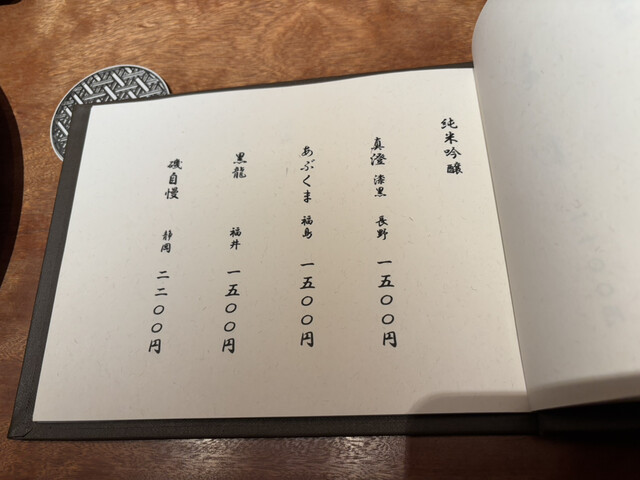 純米吟醸
真澄 漆黒 長野 一五〇〇円
あぶくま 福島 一五〇〇円
黒龍 福井 一五〇〇円
磯自慢 静岡 二二〇〇円